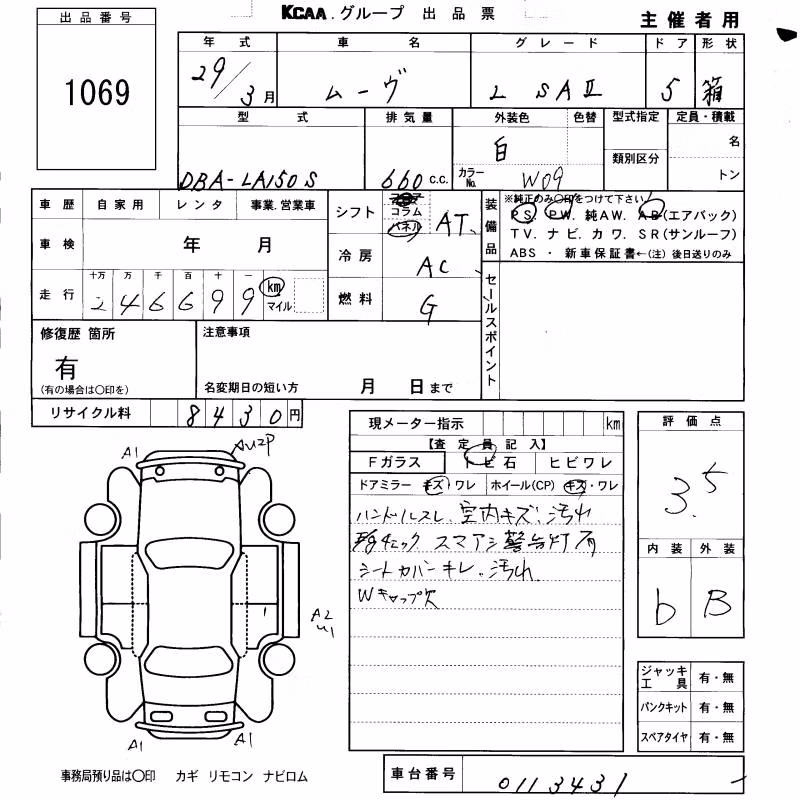 KCAA.グループ 出品票
主催者用
出品番号
1069
年式 車名 グレード ドア 形状
29/3月 ムーヴ L SAⅡ 5 箱
型式 排気量 外装色 色替 型式指定 定員・積載
DBA-LA150S 660 c.c. 白 カラーNo. W09 類別区分 名 トン
車歴 自家用 レンタ 事業.営業車
車検 年 月
走行 十万 万 千 百 十 一
246699 km マイル
シフト コラム パネル AT
冷房 AC
燃料 G
装備品 ※純正のみ○印をつけて下さい
PS. PW. 純AW. AB(エアバック)
TV. ナビ. カワ. SR(サンルーフ)
ABS ・ 新車保証書←(注) 後日送りのみ
セールスポイント
修復歴 箇所
有
(有の場合は○印を)
注意事項
名変期日の短い方 月 日まで
リサイクル料 8430円
現メーター指示 km
【査定員記入】
Fガラス トビ石 ヒビワレ
ドアミラー キズ・ワレ ホイール(CP) キズ・ワレ
ハンドルスレ、室内キズ、汚れ
チェック スマアシ警告灯有
シートカバーキレ、汚れ
Wキャップ欠
評価点
3.5
内装 外装
b B
ジャッキ工具 有・無
パンクキット 有・無
スペアタイヤ 有・無
A1 AU2P
1
A2
U1
A1 A1
事務局預り品は○印 カギ リモコン ナビロム
車台番号 0113431